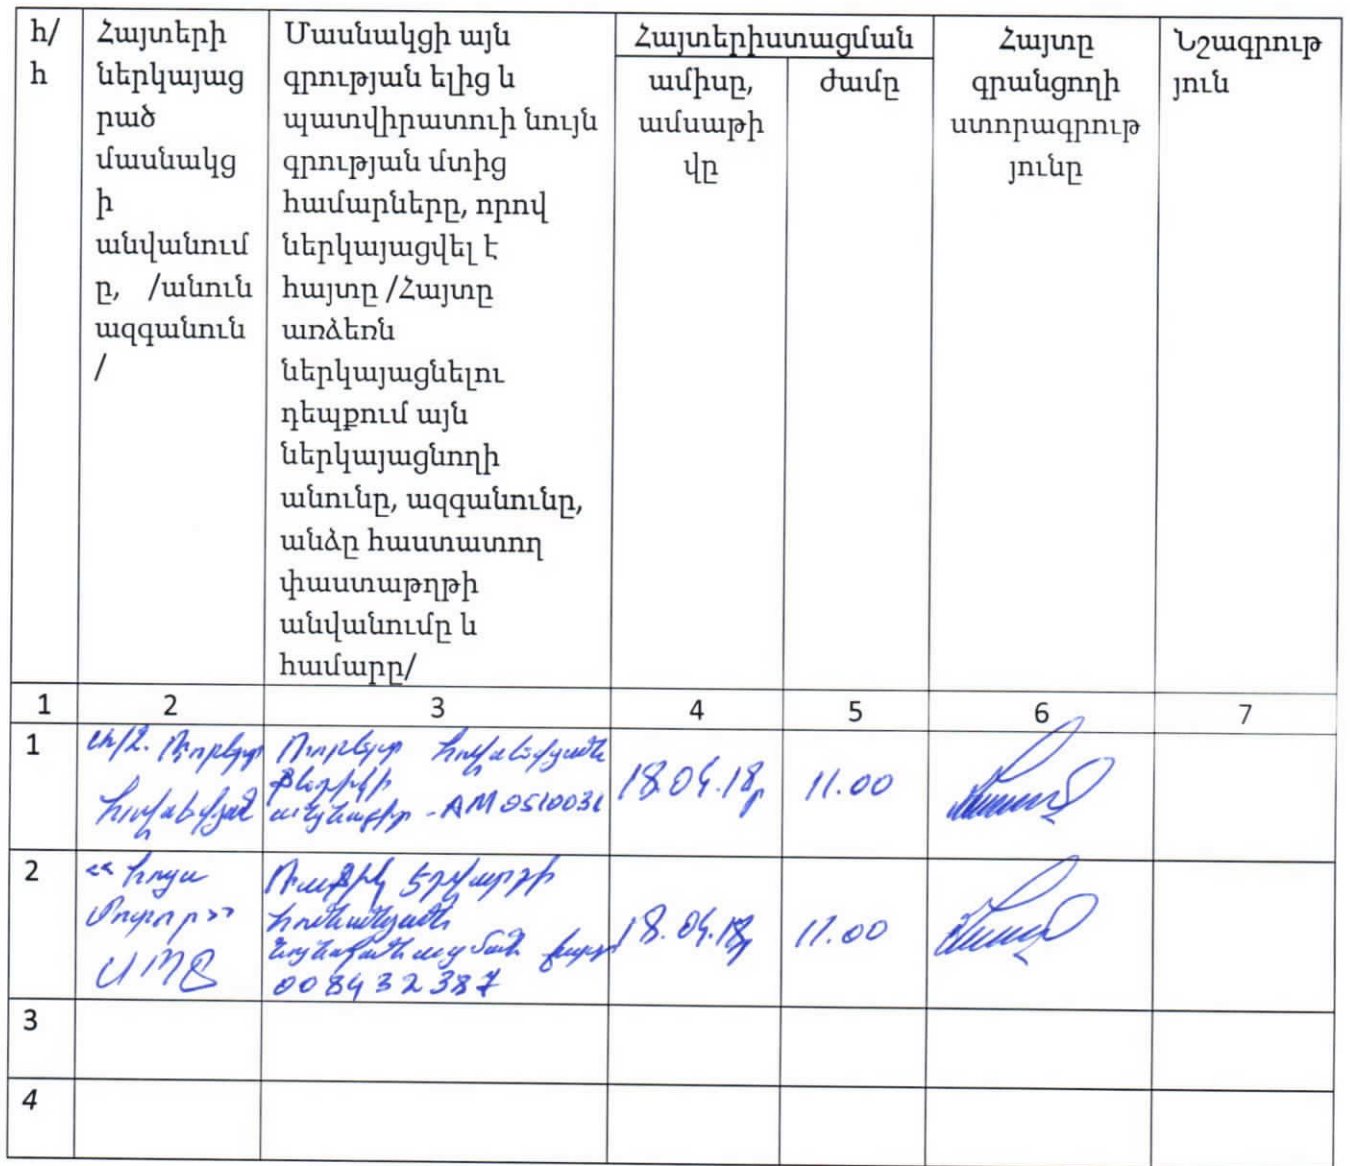 հ/
հ
Հայտերի
ներկայաց
րած
մասնակց
ի
անվանում
ը, /անուն
ազգանուն
/
Մասնակցի այն
գրության ելից և
պատվիրատուի նույն
գրության մտից
համարները, որով
ներկայացվել է
հայտը /Հայտը
առձեռն
ներկայացնելու
դեպքում այն
ներկայացնողի
անունը, ազգանունը,
անձը հաստատող
փաստաթղթի
անվանումը և
համարը/
Հայտերիստացման
ամիսը,
ամսաթի
վը
ժամը
Հայտը
գրանցողի
ստորագրութ
յունը
Նշագրութ
յուն
1 2 3 4 5 6 7
1
Ա/Ձ. Ռոբերտ
Հովհաննիսյան
Ռոբերտ
AM 0510031
18.04.18թ
11.00
2
«Հոյա
Մոթոր»
ՍՊԸ
Ռաֆիկ Էդվարդի
քարտ
008432387
18.04.18թ
11.00
3
4